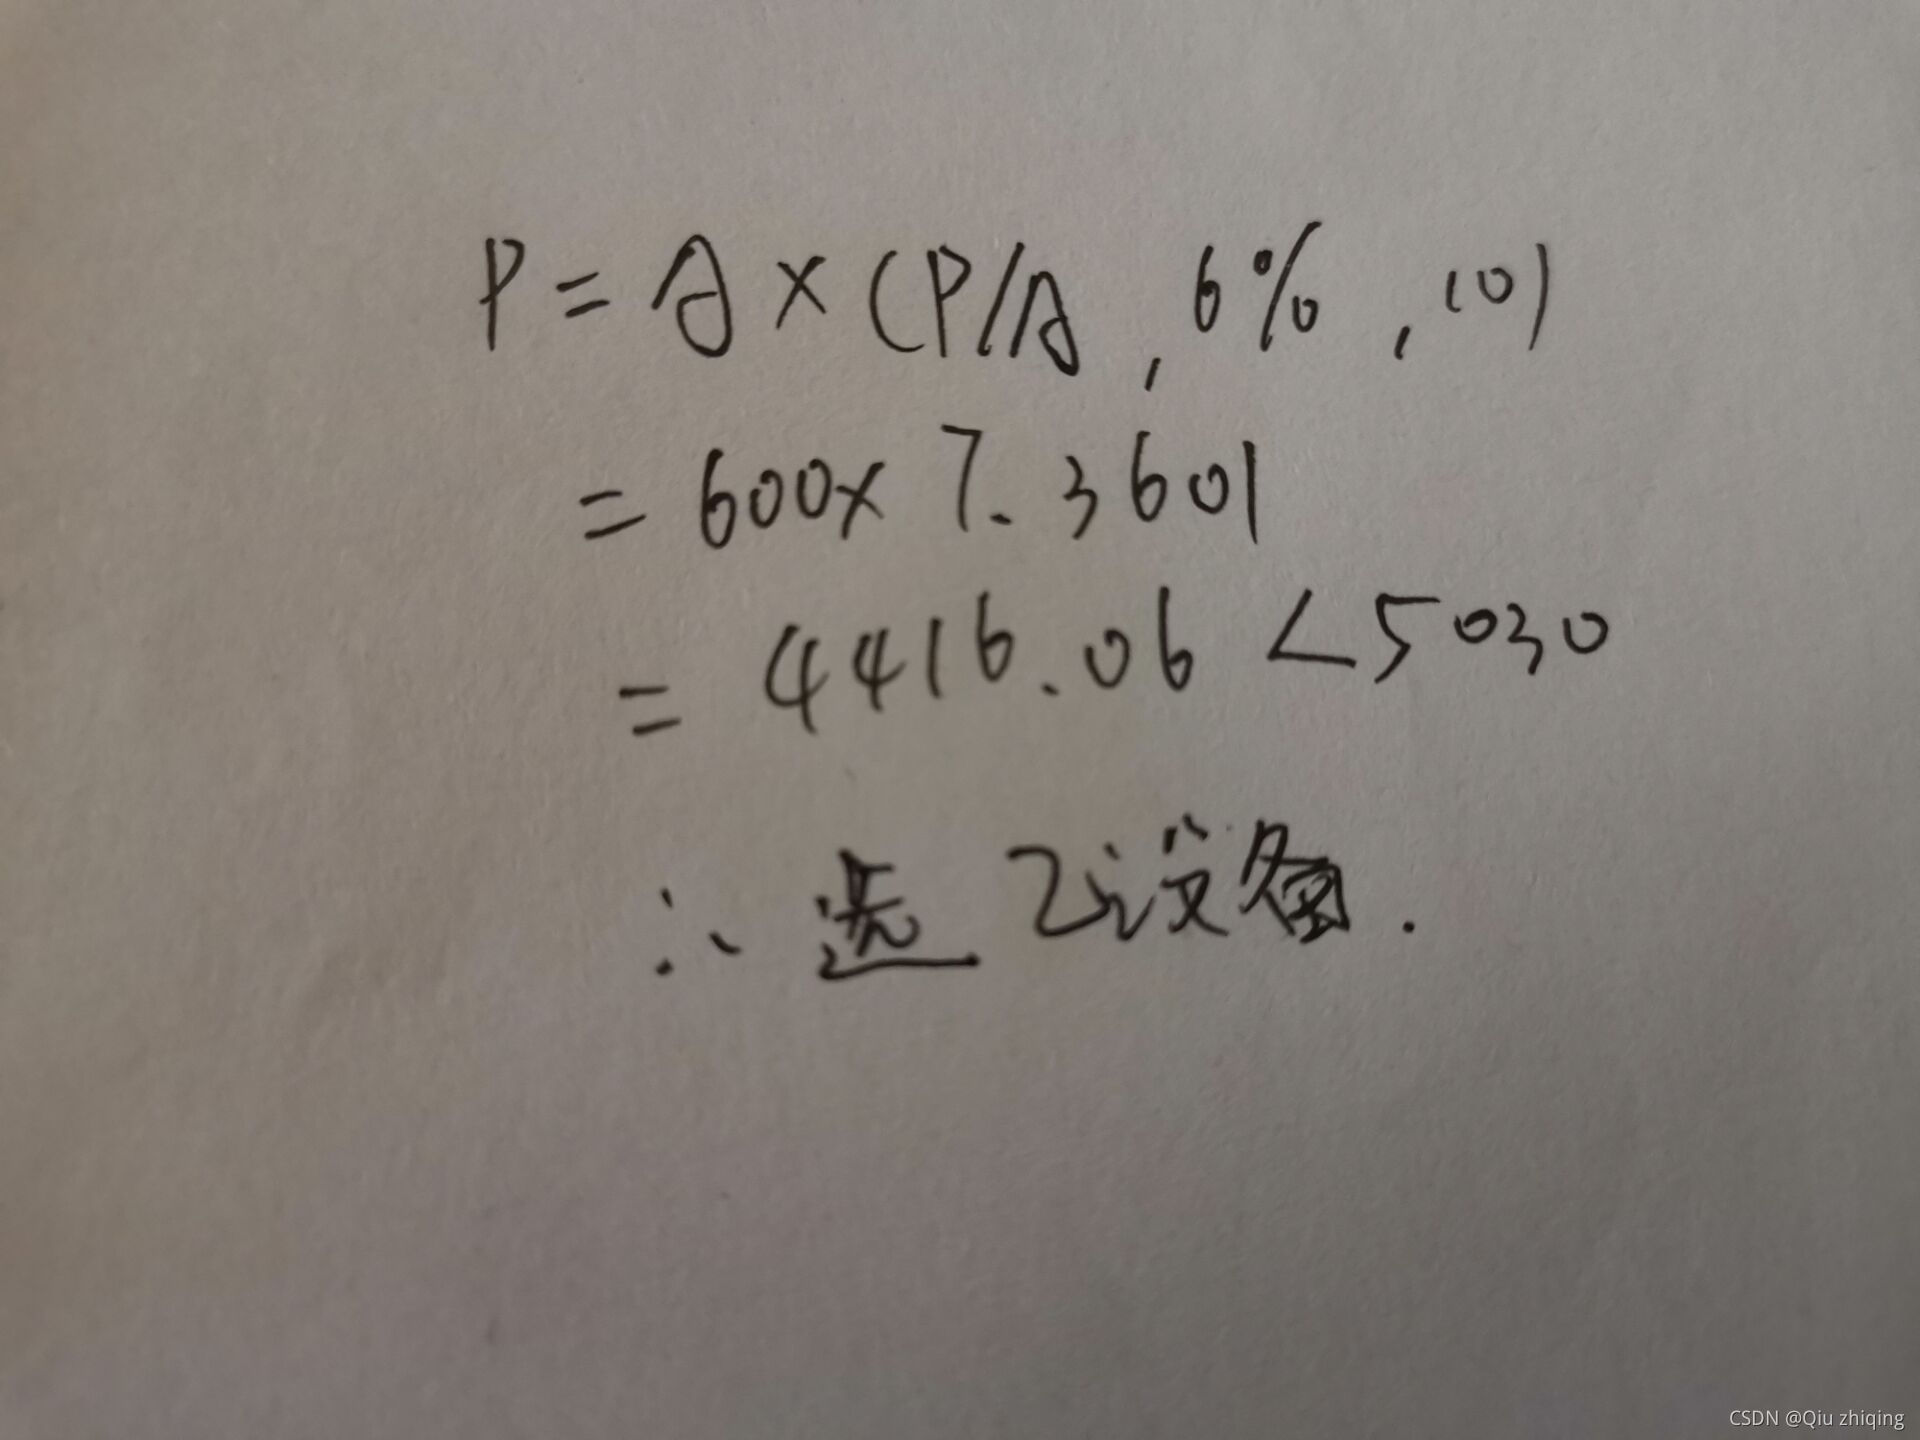 P = A × (P/A, 6%, 10)
= 600× 7.3601
= 4416.06 < 5030
∴ 选乙设备.
CSDN @Qiu zhiqing